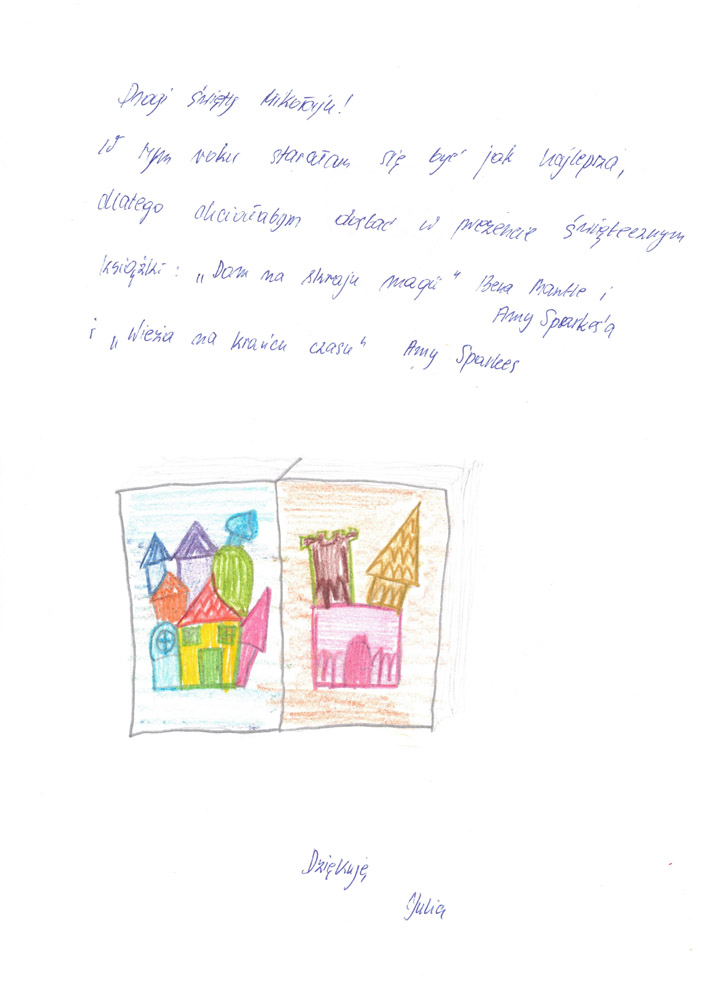 Drogi święty Mikołaju!
W tym roku starałam się być jak najlepsza,
dlatego chciałabym dostać w prezencie świątecznym
książki: „Dom na skraju magii" Bena Mantle i
Amy Sparkes'a
i „Wieża na krańcu czasu" Amy Sparkes
Dziękuję
Julia